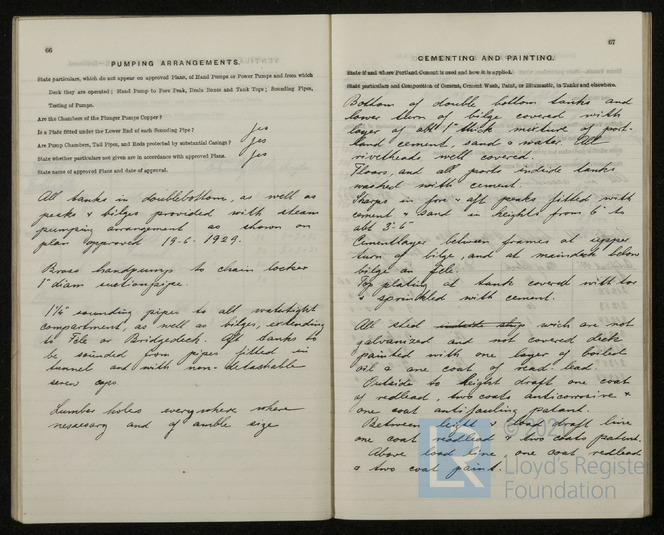 66
PUMPING ARRANGEMENTS.
State particulars, which do not appear on approved Plans, of Hand Pumps or Power Pumps and from which
Deck they are operated; Hand Pump to Fore Peak, Deals Boxes and Tank Tops; Sounding Pipes,
Testing of Pumps.
Are the Chambers of the Plunger Pumps Copper?
Is a Plate fitted under the Lower End of each Sounding Pipe? Yes
Are Pump Chambers, Tail Pipes, and Rods protected by substantial Casings? Yes
State whether particulars not given are in accordance with approved Plans. Yes
State name of approved Plans and date of approval.
All tanks in doublebottom, as well as
peaks & bilges provided with steam
pumping arrangement as shown on
plan approved 19-6-1929.
Brass handpump to chain locker
1" diam suctionpipe.
1¼" sounding pipes to all watertight
compartment, as well as bilges, extending
to Fcle or Bridgedeck. Aft tanks to
be sounded from pipes fitted in
tunnel and with non-detachable
screw caps
Lumber holes everywhere where
nessesary and of amble size
67
CEMENTING AND PAINTING.
State if and where Portland Cement is used and how it is applied.
State particulars and Composition of Cement, Cement Wash, Paint, or Bitumastic, in Tanks and elsewhere.
Bottom of double bottom tanks and
lower turn of bilge covered with
layer of abt 1" thick mixture of port-
land cement, sand & water. All
rivetheads well covered.
Floors, and all parts indside tanks
washed with cement.
Sharps in fore & aft peaks fitted with
cement & sand in heights from 6" to
abt 3'-6"
Cementlayer between frames at upper
turn of bilge, and at maindeck below
bilge an Fcle.
Top plating at tank covered with tar
& sprinkled with cement.
All steel wich are not
galvanized and not covered deck
painted with one layer of boiled
oil & one coat of read-lead
Outside to height draft one coat
of redlead, two coats anticorroive &
one coat antifauling patant.
Between light & load draft line
one coat readlead & two coats patent.
Above load line, one coat redlead
& two coat paint.
LR
© 2021
Lloyd's Register
Foundation